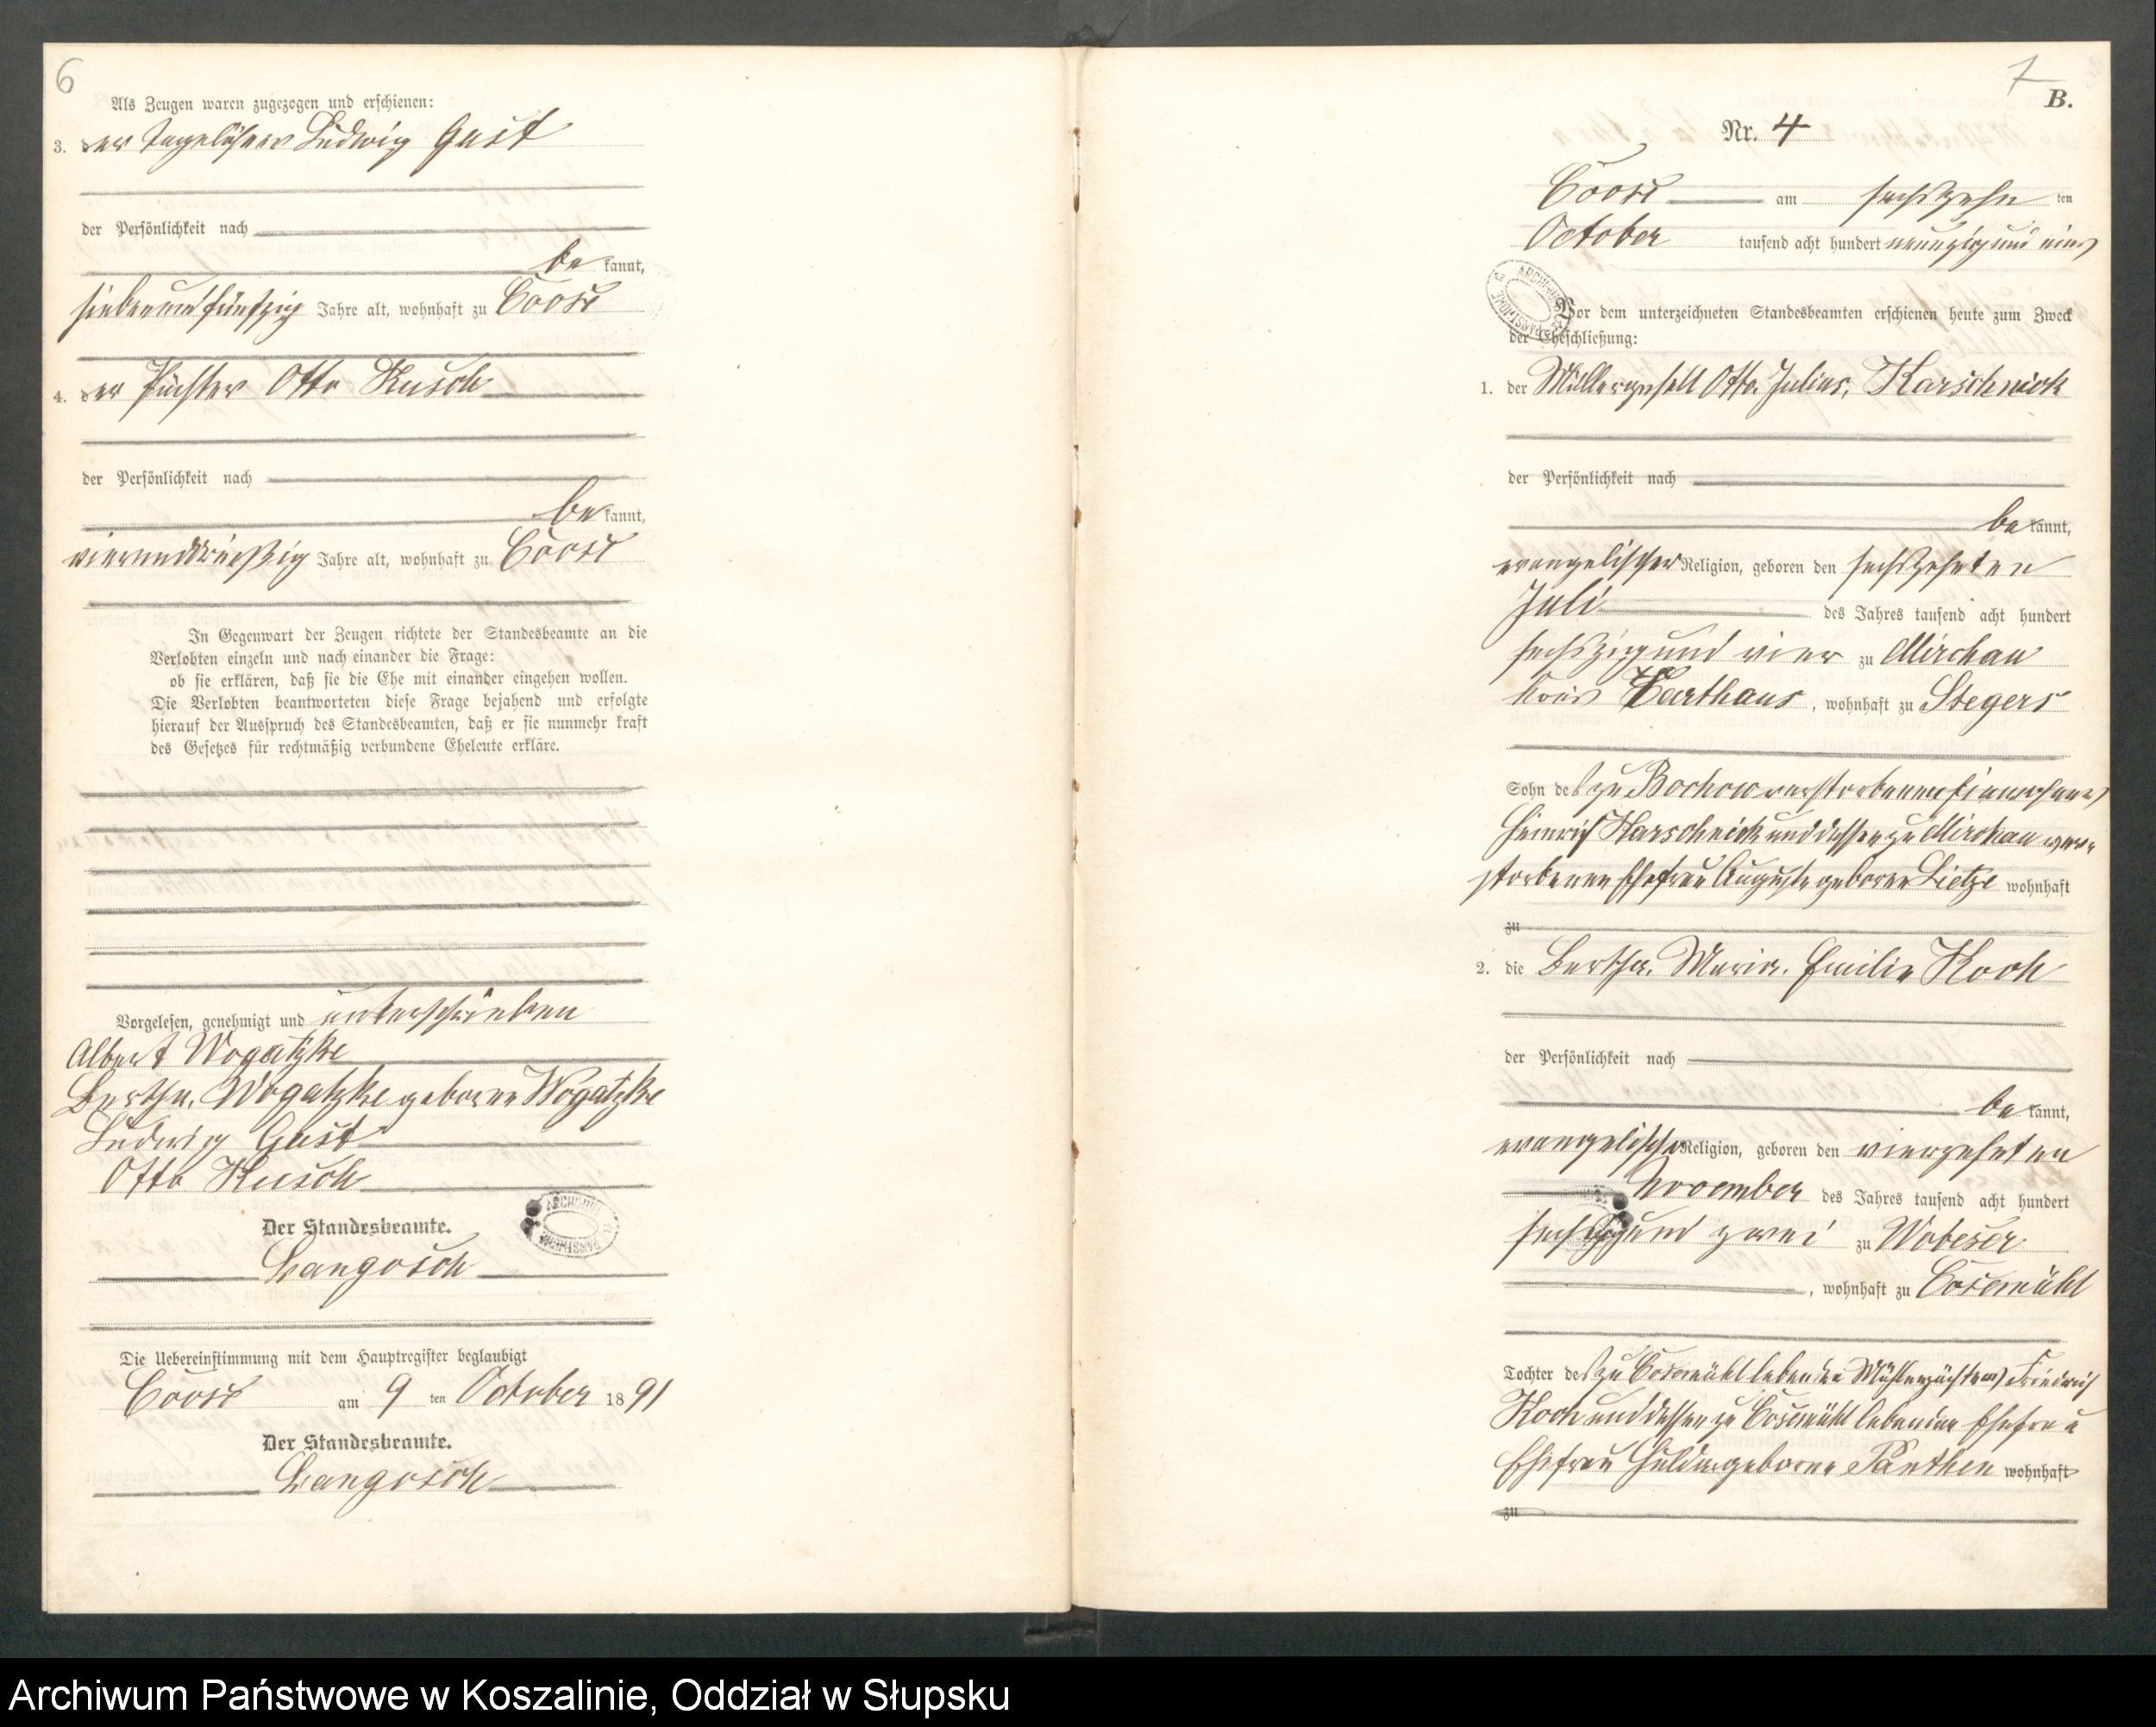 6
Als Zeugen waren zugezogen und erschienen:
3. der Tagelöhner Ludwig Gast
der Persönlichkeit nach
be kannt,
siebenundfünfzig Jahre alt, wohnhaft zu Coose
4. der Pächter Otto Kusch
der Persönlichkeit nach
be kannt,
vierunddreißig Jahre alt, wohnhaft zu Coose
In Gegenwart der Zeugen richtete der Standesbeamte an die
Verlobten einzeln und nach einander die Frage:
ob sie erklären, daß sie die Ehe mit einander eingehen wollen.
Die Verlobten beantworteten diese Frage bejahend und erfolgte
hierauf der Ausspruch des Standesbeamten, daß er sie nunmehr kraft
des Gesetzes für rechtmäßig verbundene Eheleute erkläre.
Vorgelesen, genehmigt und unterschrieben
Albert Wogatzke
Bertha Wogatzke geborne Wogatzke
Ludwig Gast
Otto Kusch
Der Standesbeamte.
Langosch
Die Uebereinstimmung mit dem Hauptregister beglaubigt
Coose am 9 ten October 18 91
Der Standesbeamte.
Langosch
7
B.
Nr. 4
Coose am sechszehn ten
October tausend acht hundert neunzig und eins
Vor dem unterzeichneten Standesbeamten erschienen heute zum Zweck
der Eheschließung:
1. der Müllergesell Otto Julius, Karschnick
der Persönlichkeit nach
be kannt,
evangelischer Religion, geboren den sechszehnten
Juli des Jahres tausend acht hundert
sechszig und vier zu Mirchau
Kreis Carthaus, wohnhaft zu Stegers
Sohn des zu Bochow verstorbenen Einwohners
Heinrich Karschnick und dessen zu Mirchau ver-
storbenen Ehefrau Auguste geborne Lietze wohnhaft
zu
2. die Bertha, Maria, Emilie Koch
der Persönlichkeit nach
be kannt,
evangelischer Religion, geboren den vierzehnten
November des Jahres tausend acht hundert
sechszig und zwei zu Wobeser
, wohnhaft zu Cosemühl
Tochter des zu Cosemühl lebenden Mühlenpächters Friedrich
Koch und dessen zu Cosemühl lebenden Ehefrau
Ehefrau Hulda geborne Panthen wohnhaft
zu
Archiwum Państwowe w Koszalinie, Oddział w Słupsku